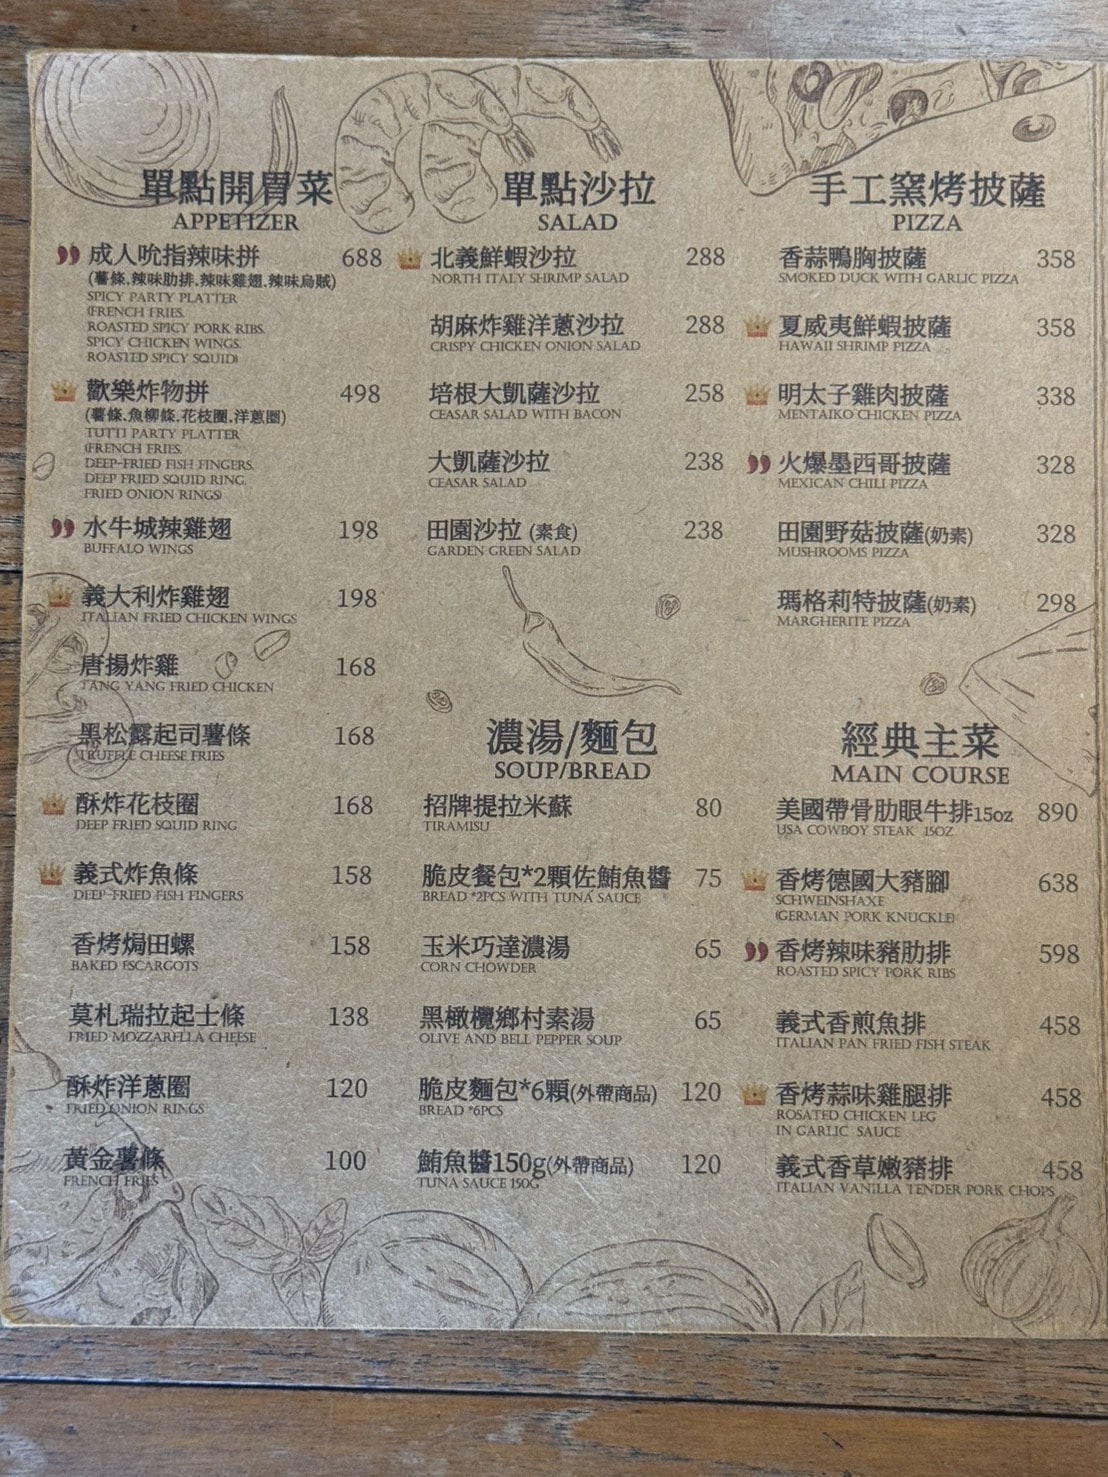 單點開胃菜
APPETIZER
成人吮指辣味拼 688
(薯條.辣味肋排.辣味雞翅.辣味烏賊)
SPICY PARTY PLATTER
(FRENCH FRIES.
ROASTED SPICY PORK RIBS.
SPICY CHICKEN WINGS.
ROASTED SPICY SQUID)
歡樂炸物拼 498
(薯條.魚柳條.花枝圈.洋蔥圈)
TUTTI PARTY PLATTER
(FRENCH FRIES.
DEEP-FRIED FISH FINGERS.
DEEP FRIED SQUID RING.
FRIED ONION RINGS)
水牛城辣雞翅 198
BUFFALO WINGS
義大利炸雞翅 198
ITALIAN FRIED CHICKEN WINGS
唐揚炸雞 168
TANG YANG FRIED CHICKEN
黑松露起司薯條 168
TRUFFLE CHEESE FRIES
酥炸花枝圈 168
DEEP FRIED SQUID RING
義式炸魚條 158
DEEP-FRIED FISH FINGERS
香烤焗田螺 158
BAKED ESCARGOTS
莫札瑞拉起士條 138
FRIED MOZZARELLA CHEESE
酥炸洋蔥圈 120
FRIED ONION RINGS
黃金薯條 100
FRENCH FRIES
單點沙拉
SALAD
北義鮮蝦沙拉 288
NORTH ITALY SHRIMP SALAD
胡麻炸雞洋蔥沙拉 288
CRISPY CHICKEN ONION SALAD
培根大凱薩沙拉 258
CEASAR SALAD WITH BACON
大凱薩沙拉 238
CEASAR SALAD
田園沙拉 (素食) 238
GARDEN GREEN SALAD
濃湯/麵包
SOUP/BREAD
招牌提拉米蘇 80
TIRAMISU
脆皮餐包*2顆佐鮪魚醬 75
BREAD *2PCS WITH TUNA SAUCE
玉米巧達濃湯 65
CORN CHOWDER
黑橄欖鄉村素湯 65
OLIVE AND BELL PEPPER SOUP
脆皮麵包*6顆(外帶商品) 120
BREAD *6PCS
鮪魚醬150g(外帶商品) 120
TUNA SAUCE 150G
手工窯烤披薩
PIZZA
香蒜鴨胸披薩 358
SMOKED DUCK WITH GARLIC PIZZA
夏威夷鮮蝦披薩 358
HAWAII SHRIMP PIZZA
明太子雞肉披薩 338
MENTAIKO CHICKEN PIZZA
火爆墨西哥披薩 328
MEXICAN CHILI PIZZA
田園野菇披薩(奶素) 328
MUSHROOMS PIZZA
瑪格莉特披薩(奶素) 298
MARGHERITE PIZZA
經典主菜
MAIN COURSE
美國帶骨肋眼牛排15oz 890
USA COWBOY STEAK 15OZ
香烤德國大豬腳 638
SCHWEINSHAXE
(GERMAN PORK KNUCKLE)
香烤辣味豬肋排 598
ROASTED SPICY PORK RIBS
義式香煎魚排 458
ITALIAN PAN FRIED FISH STEAK
香烤蒜味雞腿排 458
ROSATED CHICKEN LEG
IN GARLIC SAUCE
義式香草嫩豬排 458
ITALIAN VANILLA TENDER PORK CHOPS